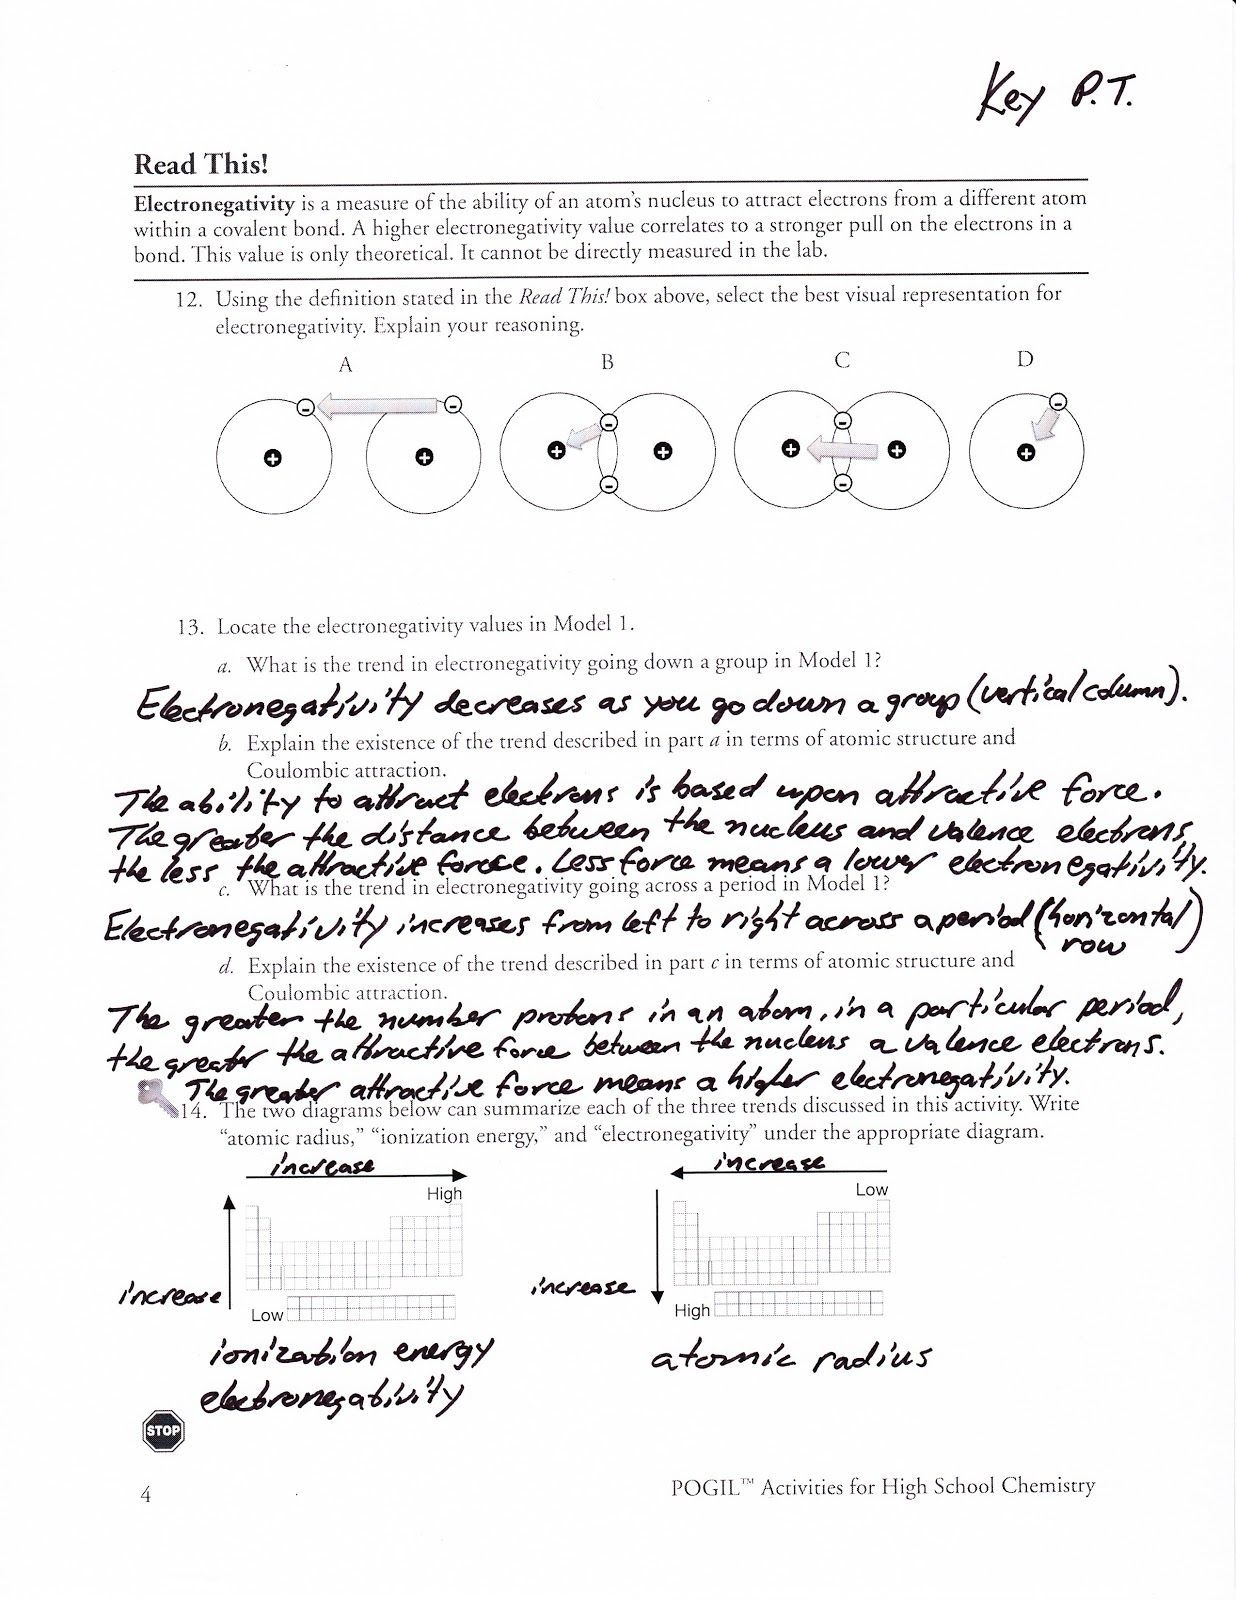 Key P.T.
Read This!
Electronegativity is a measure of the ability of an atom's nucleus to attract electrons from a different atom
within a covalent bond. A higher electronegativity value correlates to a stronger pull on the electrons in a
bond. This value is only theoretical. It cannot be directly measured in the lab.
12. Using the definition stated in the Read This! box above, select the best visual representation for
electronegativity. Explain your reasoning.
A B C D
- - - - - - -
+ + + + + + +
13. Locate the electronegativity values in Model 1.
a. What is the trend in electronegativity going down a group in Model 1?
Electronegativity decreases as you go down a group (vertical column).
b. Explain the existence of the trend described in part a in terms of atomic structure and
Coulombic attraction.
The ability to attract electrons is based upon attractive force.
The greater the distance between the nucleus and valence electrons,
the less the attractive force. Less force means a lower electronegativity.
c. What is the trend in electronegativity going across a period in Model 1?
Electronegativity increases from left to right across a period (horizontal
row)
d. Explain the existence of the trend described in part c in terms of atomic structure and
Coulombic attraction.
The greater the number protons in an atom, in a particular period,
the greater the attractive force between the nucleus a valence electrons.
The greater attractive force means a higher electronegativity.
14. The two diagrams below can summarize each of the three trends discussed in this activity. Write
"atomic radius," "ionization energy," and "electronegativity" under the appropriate diagram.
increase increase
High Low
increase increase
Low High
ionization energy atomic radius
electronegativity
STOP
4 POGIL™ Activities for High School Chemistry